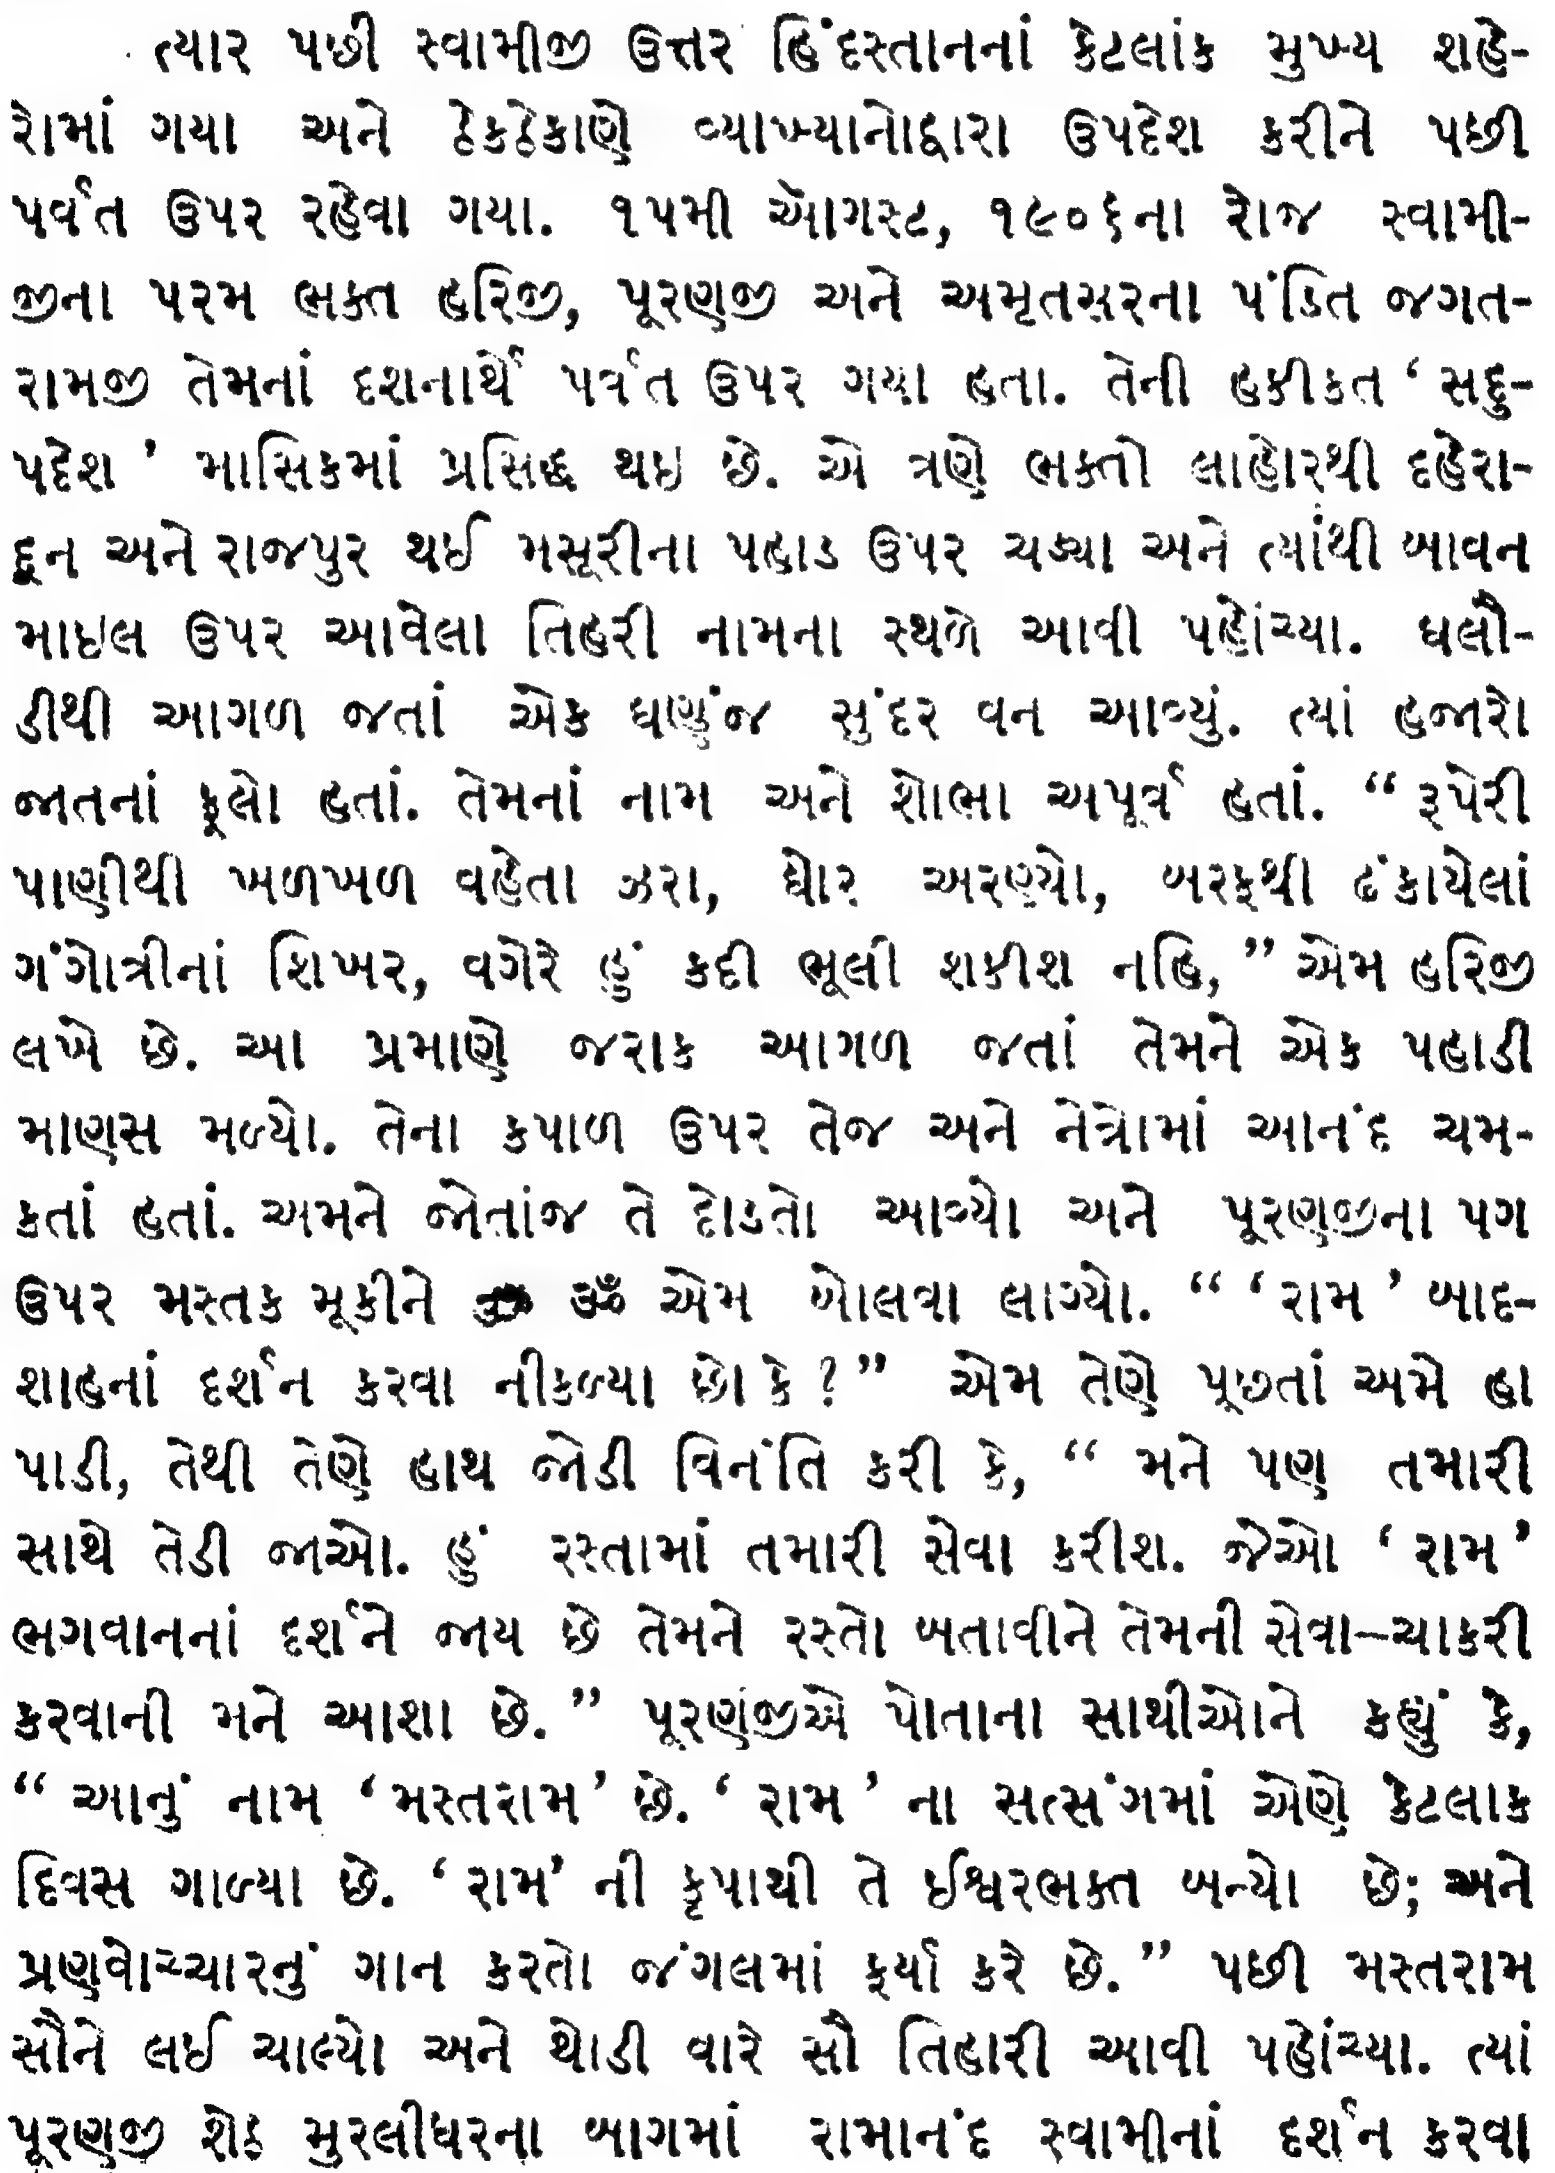 ત્યાર પછી સ્વામીજી ઉત્તર હિંદસ્તાનનાં કેટલાંક મુખ્ય શહે-
રોમાં ગયા અને ઠેકઠેકાણે વ્યાખ્યાનોદ્વારા ઉપદેશ કરીને પછી
પર્વત ઉપર રહેવા ગયા. ૧૫મી ઑગસ્ટ, ૧૯૦૬ના રોજ સ્વામી-
જીના પરમ ભક્ત હરિજી, પૂરણજી અને અમૃતસરના પંડિત જગત-
રામજી તેમનાં દશનાર્થે પર્વત ઉપર ગયા હતા. તેની હકીકત ‘ સદુ-
પદેશ ’ માસિકમાં પ્રસિદ્ધ થઇ છે. એ ત્રણે ભક્તો લાહોરથી દહેરા-
દૂન અને રાજપુર થઈ મસૂરીના પહાડ ઉપર ચડ્યા અને ત્યાંથી બાવન
માઇલ ઉપર આવેલા તિહરી નામના સ્થળે આવી પહોંચ્યા. ધલૌ-
ડીથી આગળ જતાં એક ઘણુંજ સુંદર વન આવ્યું. ત્યાં હજારો
જાતનાં ફૂલો હતાં. તેમનાં નામ અને શોભા અપૂર્વ હતાં. “ રૂપેરી
પાણીથી ખળખળ વહેતા ઝરા, ઘોર અરણ્યો, બરફથી ઢંકાયેલાં
ગંગોત્રીનાં શિખર, વગેરે હું કદી ભૂલી શકીશ નહિ, ” એમ હરિજી
લખે છે. આ પ્રમાણે જરાક આગળ જતાં તેમને એક પહાડી
માણસ મળ્યો. તેના કપાળ ઉપર તેજ અને નેત્રોમાં આનંદ ચમ-
કતાં હતાં. અમને જોતાંજ તે દોડતો આવ્યો અને પૂરણજીના પગ
ઉપર મસ્તક મૂકીને ૐ ૐ એમ બોલવા લાગ્યો. “ ‘ રામ ’ બાદ-
શાહનાં દર્શન કરવા નીકળ્યા છો કે ? ” એમ તેણે પૂછતાં અમે હા
પાડી, તેથી તેણે હાથ જોડી વિનંતિ કરી કે, “ મને પણ તમારી
સાથે તેડી જાઓ. હું રસ્તામાં તમારી સેવા કરીશ. જેઓ ‘ રામ ’
ભગવાનનાં દર્શને જાય છે તેમને રસ્તો બતાવીને તેમની સેવા-ચાકરી
કરવાની મને આશા છે. ” પૂરણજીએ પોતાના સાથીઓને કહ્યું કે,
“ આનું નામ ‘ મસ્તરામ ’ છે. ‘ રામ ’ ના સત્સંગમાં એણે કેટલાક
દિવસ ગાળ્યા છે. ‘ રામ’ ની કૃપાથી તે ઈશ્વરભક્ત બન્યો છે; અને
પ્રણવોચ્ચારનું ગાન કરતો જંગલમાં ફર્યા કરે છે. ” પછી મસ્તરામ
સૌને લઈ ચાલ્યો અને થોડી વારે સૌ તિહારી આવી પહોંચ્યા. ત્યાં
પૂરણજી શેઠ મુરલીધરના બાગમાં રામાનંદ સ્વામીનાં દર્શન કરવા